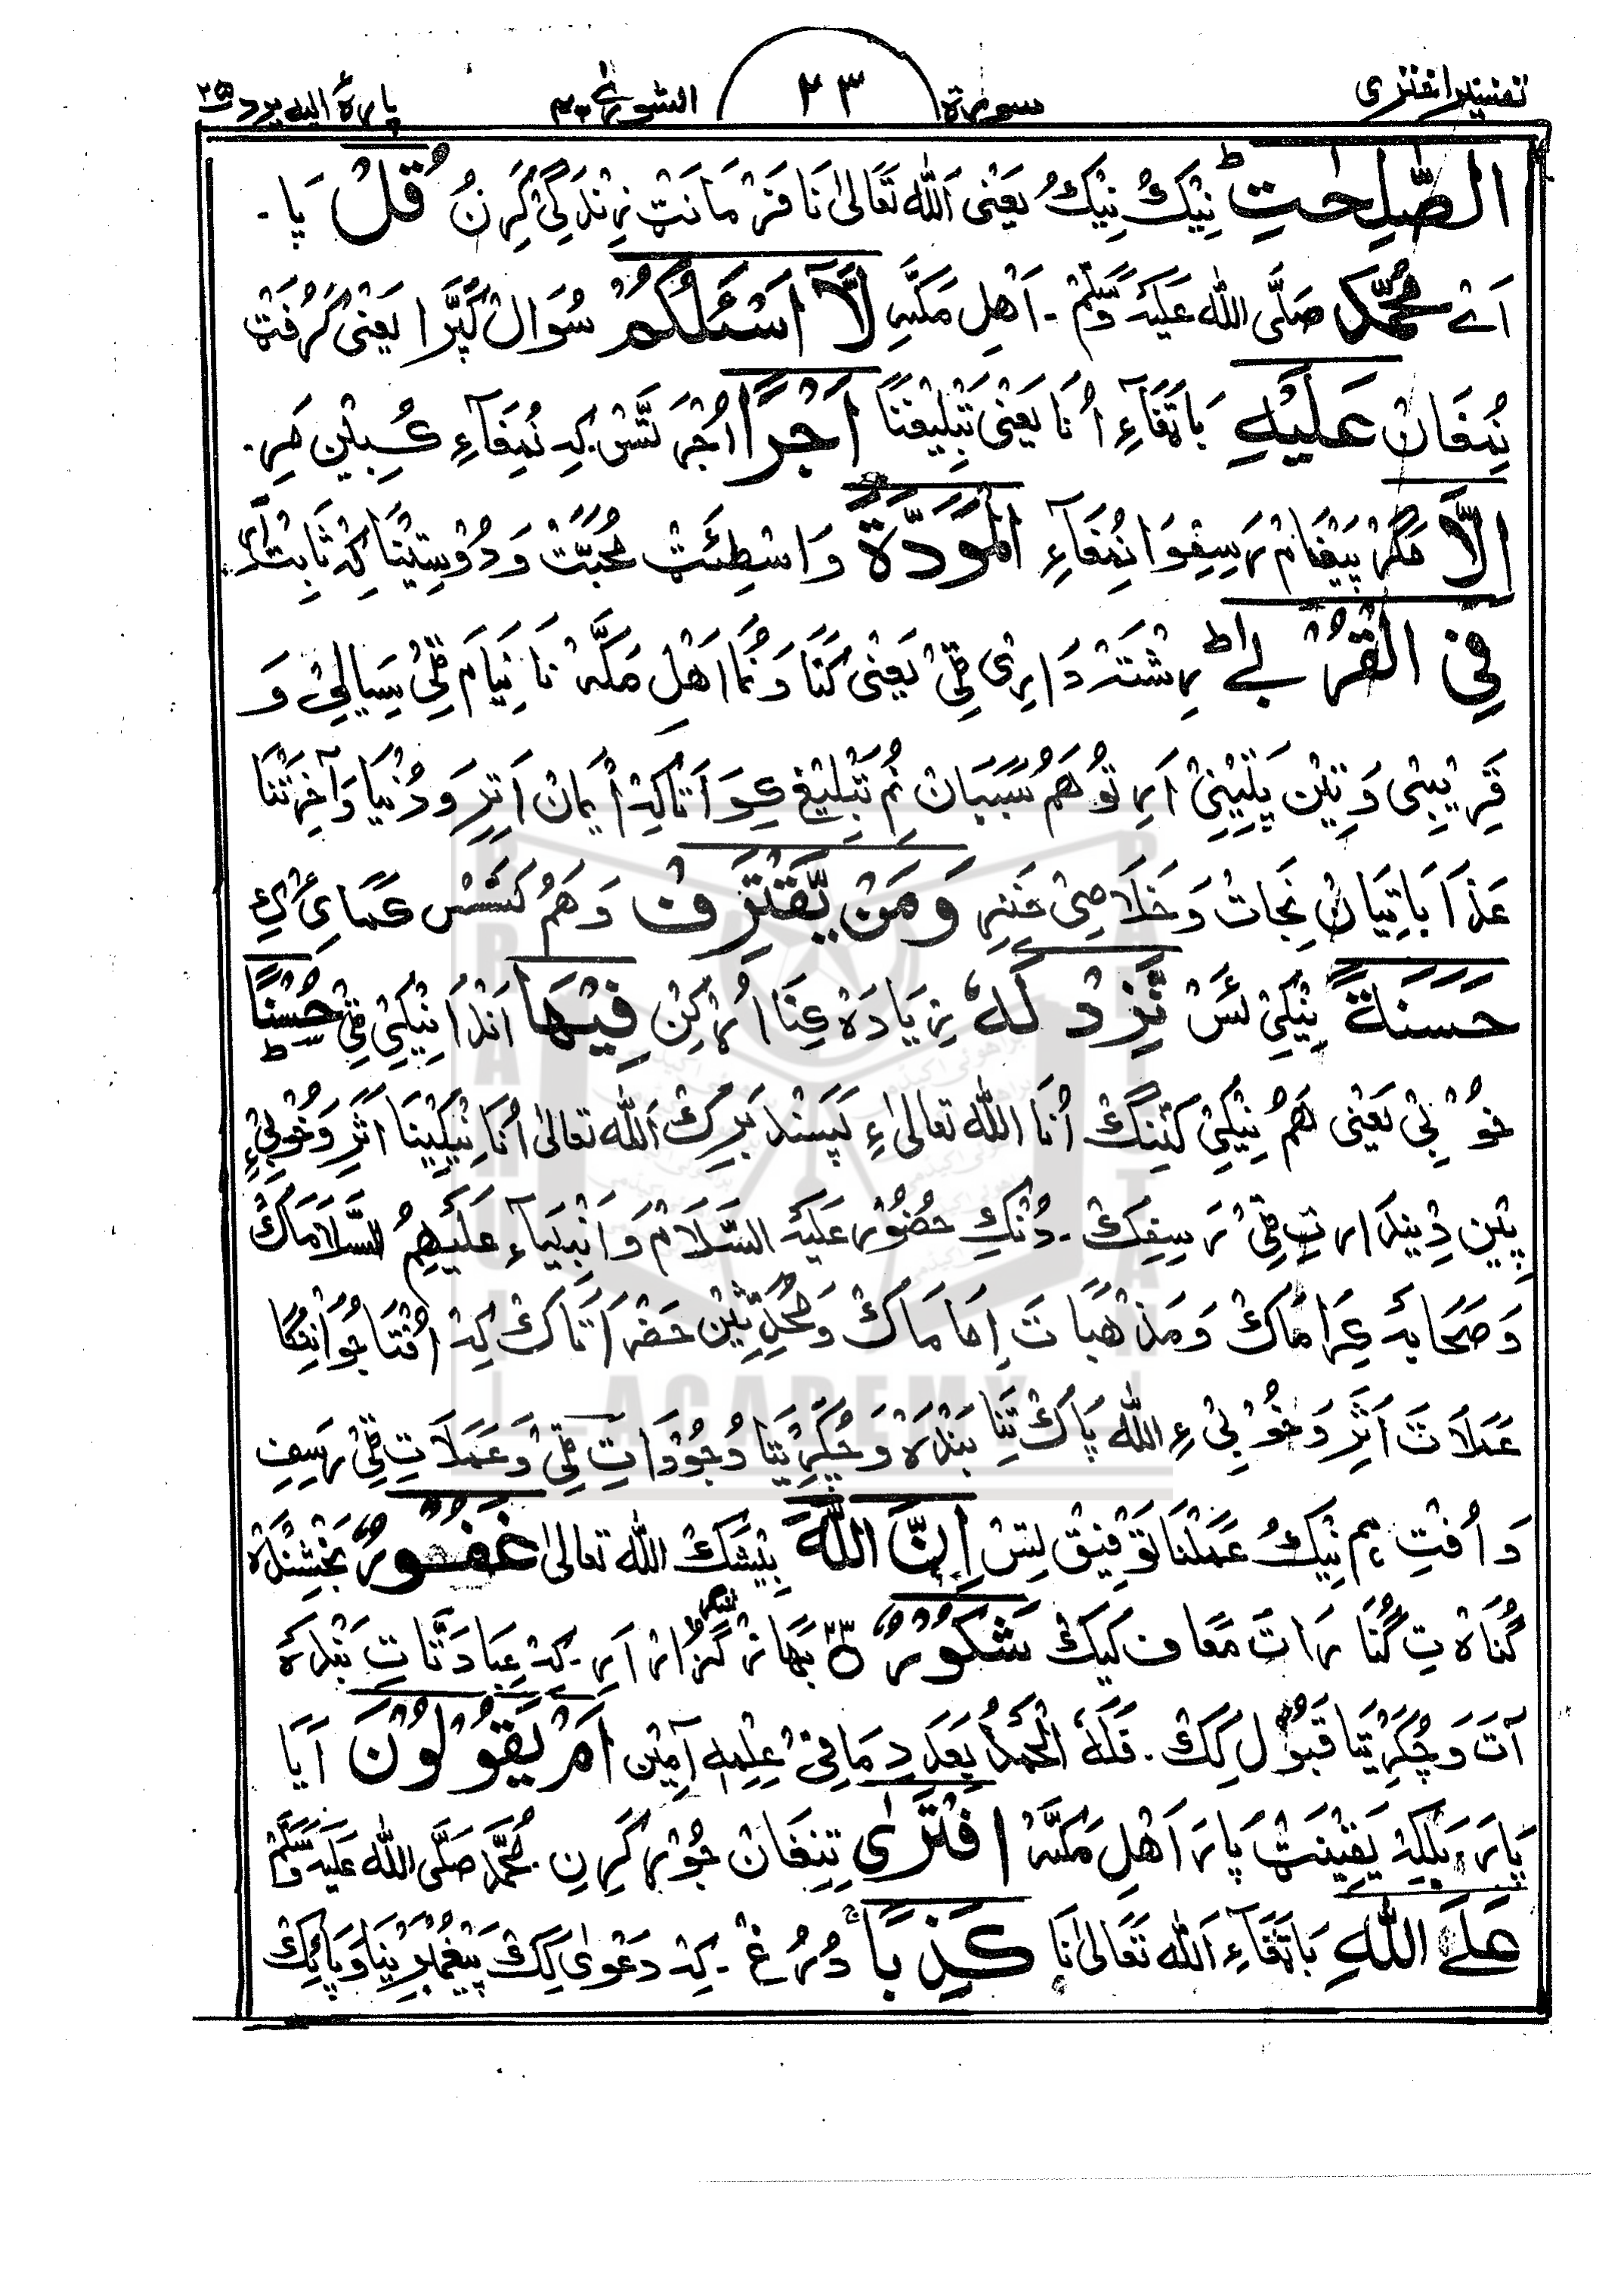 تفسیر اختری سورۃ ۲۳ الشورٰی پارہ الیہ یرد ۲۵
الصّٰلِحٰتِ ؕ نِیْکُ نِیْکُ یَعْنِی اَللّٰہ تَعَالیٰ نَا فَرْمَانَتْ زِنْدَگِیْ کَرِنُ قُلْ پَا۔
اَے مُحَمَّد صَلَّی اللّٰہ عَلَیْہِ وَسَلَّمْ۔ اَھْلِ مَکَّہِ لَآ اَسْئَلُکُمْ سُوَالْ کَپَّرا یَعْنِیْ گَرُفَتْ
نُمْفَانْ عَلَیْہِ بَاتَغَاءِ اُنَا یَعْنِیْ تَبْلِیْغَنَا اَجْرًا اُجْرَتَسْ کِہ نُمْفَاءِ کُبِیْن مَرِ۔
اِلَّا مَگَرْ پَیْغَامْ رَسِفِوَا نُمْفَاءِ الْمَوَدَّۃَ وَاسْطِئَتْ مُحَبَّتْ وَدُوْسِتِیْنَا کِہْ ثَابِتْ
فِی الْقُرْبٰے ؕ رِشْتَہ دَارِی ٹِیْ یَعْنِی کَنَا وَنُمَا اَھْلِ مَکَّہْ نَا نِیَام ٹِیْ سِیَالِیْ وَ
قَرِیْبِیْ وَتِیْن پَتِیْنِیْ اَرِ تَوْ ھَمُ سَبَبَانْ نُمْ تَبْلِیْغ کِوَ اَتَاکِہْ اِیْمَانْ اَتِرِ وَدُنْیَا وَآخِرَتْنَا
عَذَابَاتِیَانْ نَجَاتْ وَخَلَاصِیْ خَنِرِ وَمَنْ یَّقْتَرِفْ وَھَمُ کَسَسْ کَمَائِیْ کِ
حَسَنَۃً نِیْکِیْ ئَسْ نَّزِدْ لَہٗ زِیَادَہْ عِنَا اُرْکِنْ فِیْھَا اَنْدَا نِیْکِیْ ٹِیْ حُسْنًا ؕ
خُوْبِیْ یَعْنِی ھَمُ نِیْکِیْ کَنِنْگْ اُنَا اللّٰہ تعالیٰ ءِ پَسَنْد بَرِکْ اَللّٰہ تعالیٰ اُنَا نِیْکِیْنَا اَثَرِ وَخُوْبِیْ ءِ
پِیْن دِیْنْدَارتِ ٹِیْ رَسِفِکْ۔ دُنْکِ حضُوْر عَلَیْہِ السَّلَامْ وَاَنْبِیَآءِ عَلَیْہِمُ السَّلَامَاکْ
وَصَحَابَہ کِرَامَاکْ وَمَذْھَبَاتَ اِمَامَاکْ وَمُحَدِّثِیْن حَضْرَاتَاکْ کِہْ اُفْتَا جُوَانگا
عَمَلَاتَ اَثَرِ وَخُوْبِیْ ءِ اللّٰہ پَاکْ تَنَا بَنْدَہْ وَچُکِرْتَا وُجُوْدَاتِ ٹِیْ وَعَمَلَاتِ ٹِیْ رَسِفِ
وَاُفْتِ ہم نِیْکُ عَمَلْنَا تَوْفِیْق تِسْ اِنَّ اللّٰہَ بِیْشَکْ اللّٰہ تعالیٰ غَفُوْرٌ بَخْشِنْدَہْ
گُنَاہ تِ گُنَا رَاتَ مَعَاف کَیِکْ شَکُوْرٌ ۝۲۳ بَھَازْ شُکر گُزَار اَرِ۔ کِہْ عِبَادَتَاتِ بَنْدَہ
آتَ وَچُکِرْتَا قَبُوْل کِکْ۔ فَلَہُ الْحَمْدُ بِعَدَدِ مَا فِیْ عِلْمِہِ آمِیْن اَمْ یَقُوْلُوْنَ آیَا
پَارَہ بَلْکِہْ یَقِیْنَتْ پَارَ اَھْلِ مَکَّہْ افْتَرٰی تِنِغَانْ جُوْر کَرِنِ مُحَمَّد صَلَّی اللّٰہ عَلَیْہِ وَسَلَّمْ
عَلَی اللّٰہِ بَاتَغَآءِ اَللّٰہ تَعَالیٰ نَا کَذِبًا ۚ دُرُغْ۔ کِہ دَعْوٰی کِکْ پَیْغَمْبَرِیْنَا وَپَائِکْ
BRAHUI ACADEMY PAKISTAN